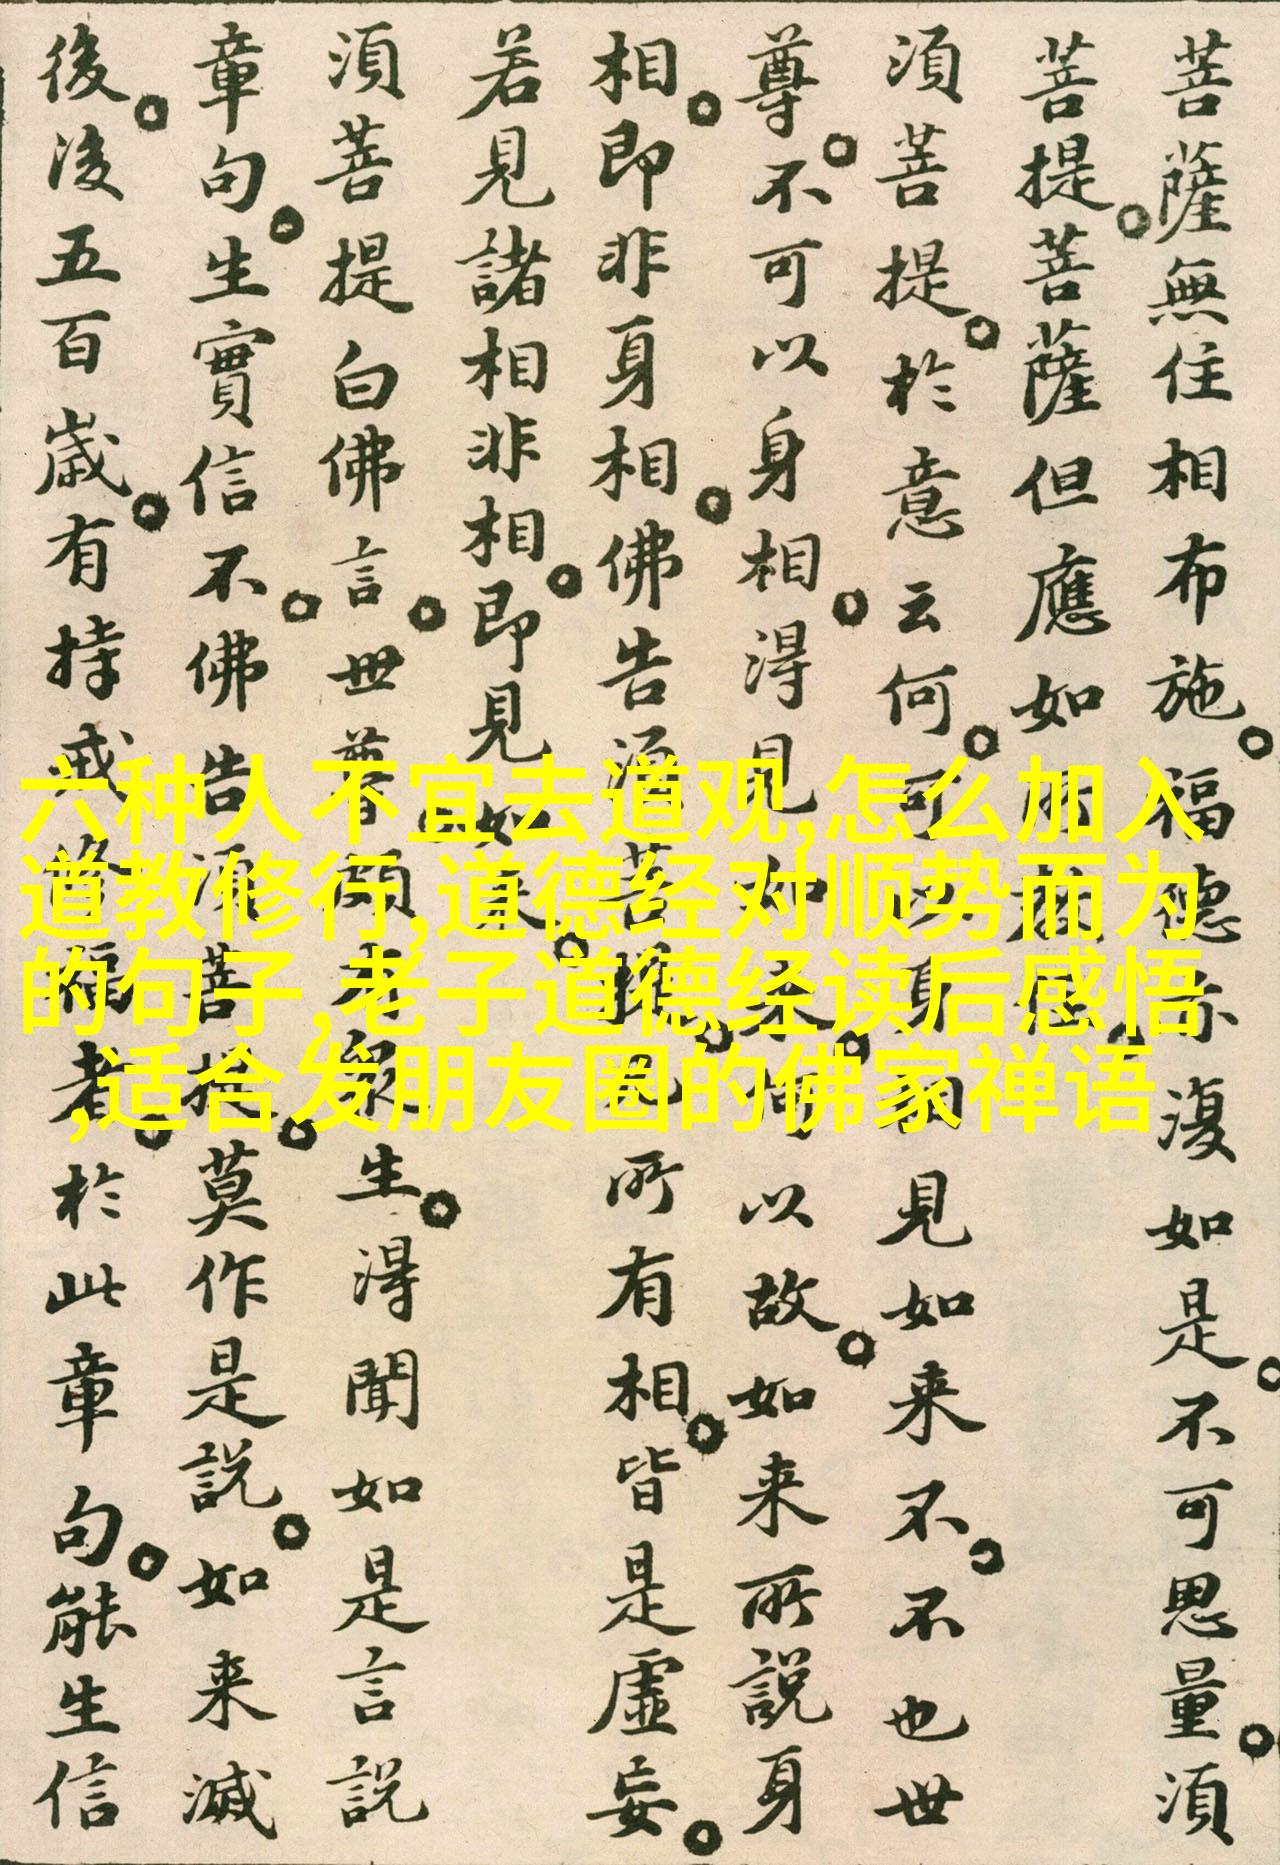 菩薩無住相布施。福德亦復如是。不可思量。須
菩提。菩薩但應如所教住。
須菩提。於意云何。可以身相見如来不。不也世
尊。不可以身相。得見如来。何以故。如来所說身
相。即非身相。佛告須菩提。凡所有相。皆是虛妄。
若見諸相非相。即見如来。
須菩提白佛言。世尊。頗有眾生。得聞如是言說
章句。生實信不。佛告須菩提。莫作是說。如来滅
後。後五百歲。有持戒修福者。於此章句。能生信
六种人不宜去道观,怎么加入
道教修行,道德经对顺势而为
的句子,老子道德经读后感悟
,适合发朋友圈的佛家禅语